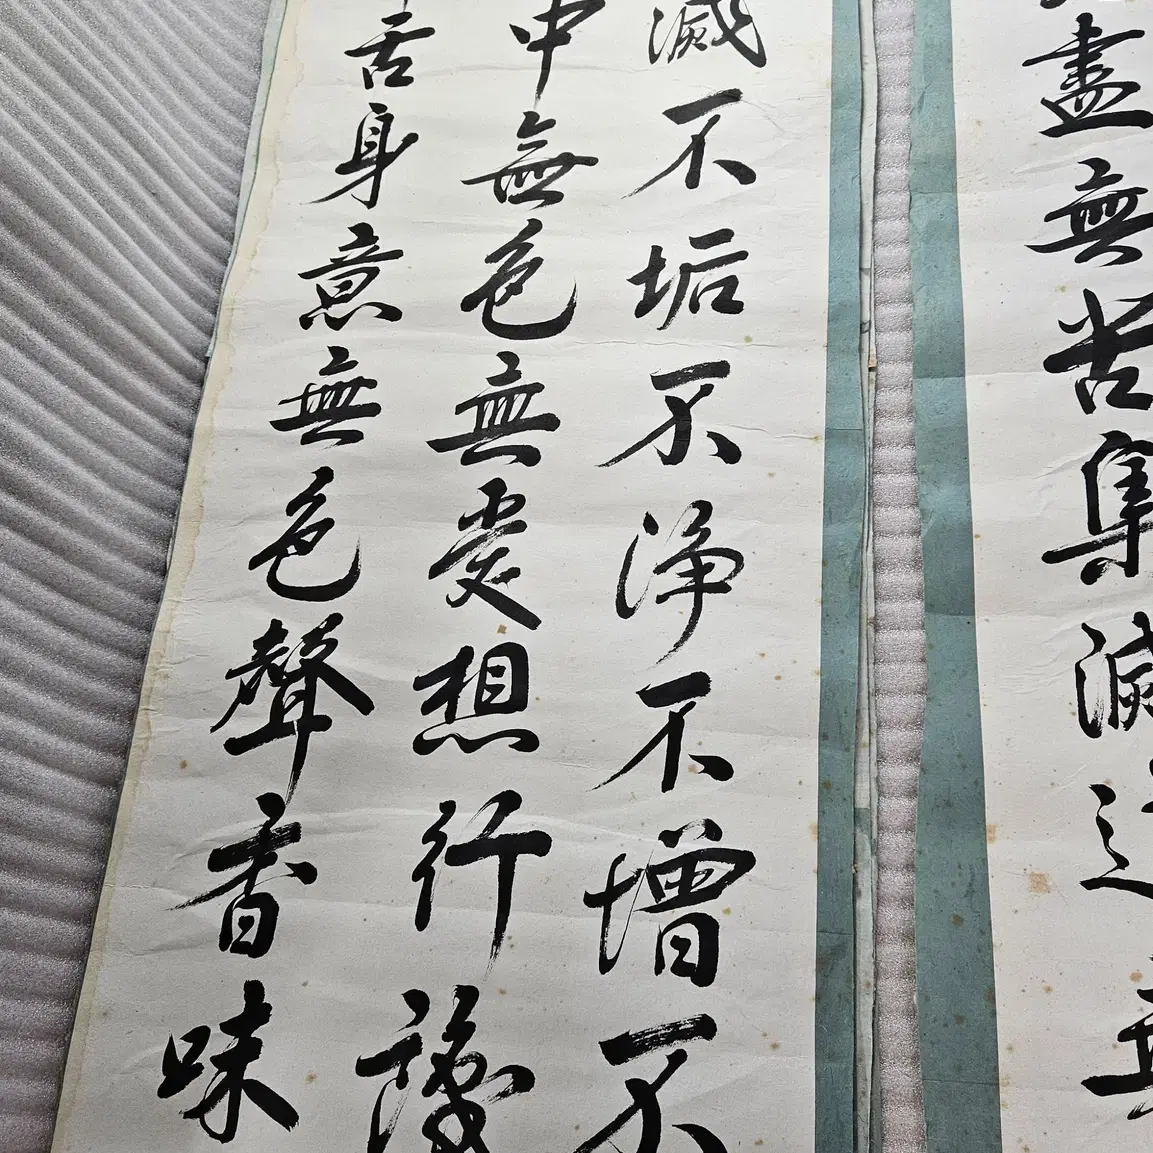 盡無苦集滅道無
滅不垢不淨不增不
中無色無受想行識
舌身意無色聲香味